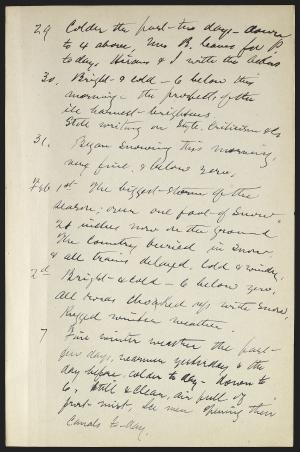 29 Colder the past two days - down
to 4 above, Mrs B. leaves for P.
to day, Hiram & I write the
30. Bright & cold - 6 below this
morning - the prospects of the
ice harvest brightens.
Still writing on Style. Criticism &c
31. Began snowing this morning,
very fine. 2 below zero.
Feb 1st The biggest storm of the
season; over one foot of snow.
inches now on the ground
The country buried in snow,
& all trains delayed. Cold & windy.
2d Bright & cold - 6 below zero,
all roads choked up with snow,
Rugged winter weather.
7 Fine winter weather the past
few days, warmer yesterday & the
day before, colder to day - down to
6, still & clear, air full of
frost-mist, see men opening their
canals to-day.